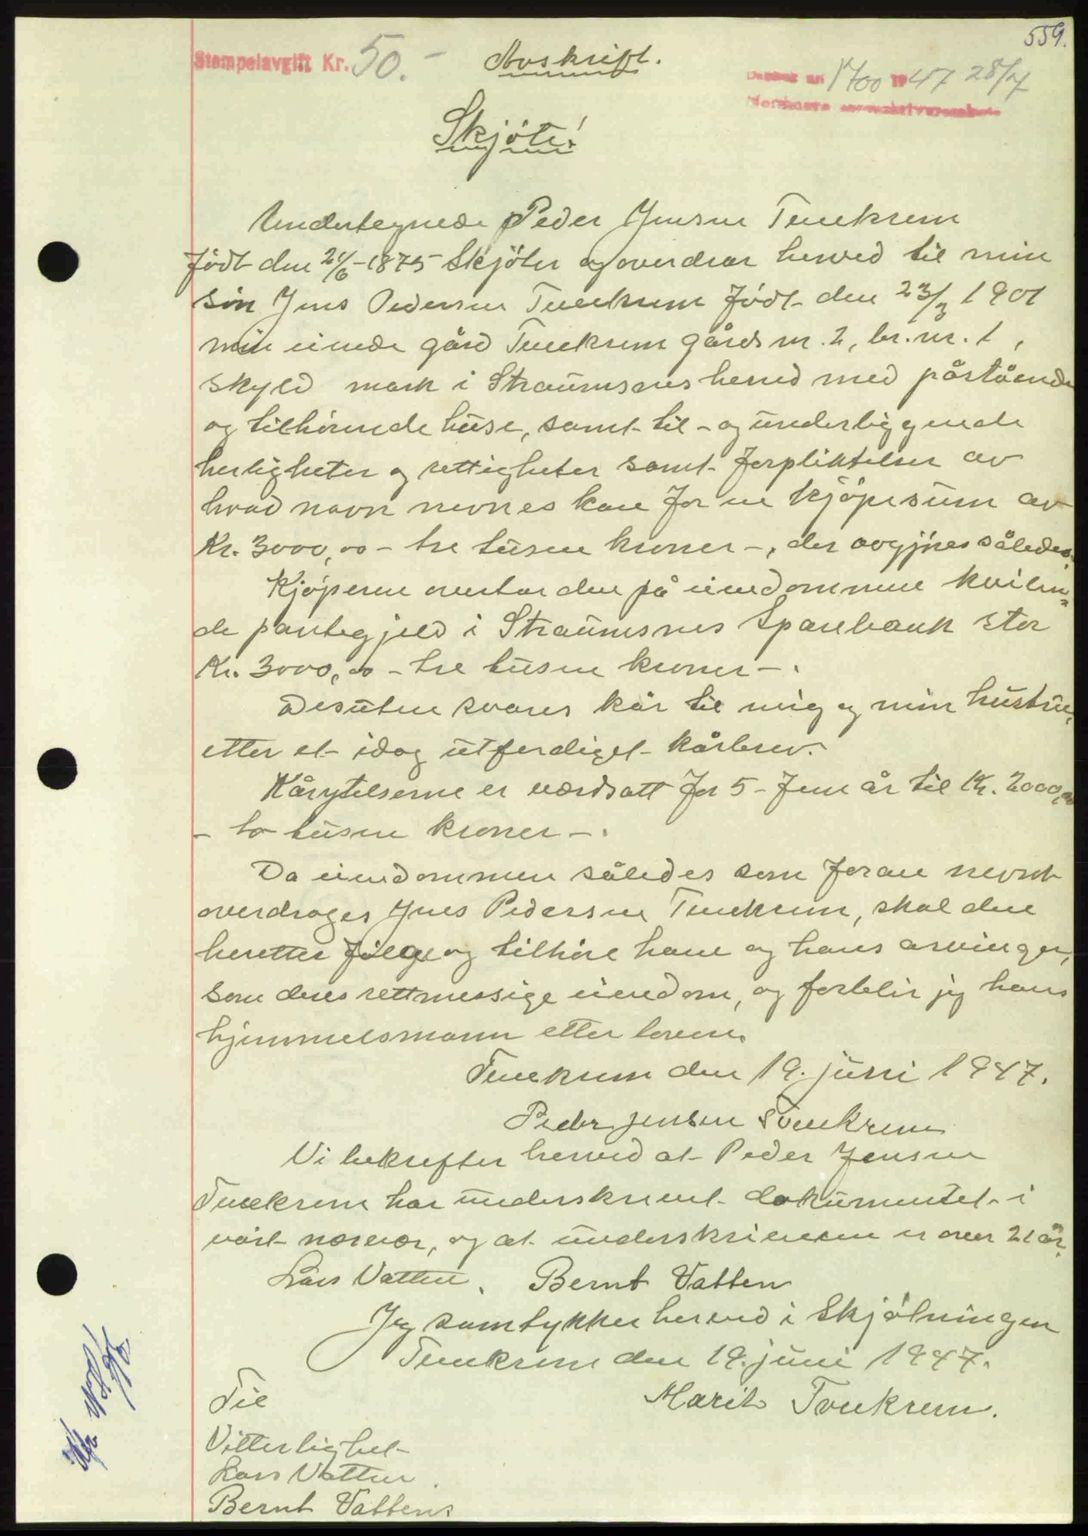 559.
Stempelavgift Kr. 50.-
Avskrift.
Dagbok nr. 1700 1947 28/7
Nordmøre sorenskriverembete
Skjöte!
Undertegnede Peder Jensen Tvenkrem
född den 24/6-1875 Skjöter og overdrar herved til min
sön Jens Pedersen Tvenkrem född den 23/3 1901
min eiende gård Tvenkrem gårds nr. 2, br. nr. 1,
skyld mark i Straumsnes herred med påstående
og tilhörende huse, samt til- og underliggende
herligheter og rettigheter samt forpliktelser av
hvad navn nevnes kan for en kjöpesum av
Kr. 3000,00 - tre tusen kroner -, der avgjöres således.
Kjöperen overtar den på eiendommen hvilen=
de pantegjeld i Straumsnes Sparebank stor
Kr. 3000,00 - tre tusen kroner -.
Desuten svares kår til mig og min hustru,
etter et idag utferdiget kårbrev.
Kårytelserne er verdsatt for 5- fem år til Kr. 2000,00
- to tusen kroner -.
Da eiendommen således som foran nevnt
overdrages Jens Pedersen Tvenkrem, skal den
heretter fölge og tilhöre ham og hans arvinger,
som deres rettmessige eiendom, og forblir jeg hans
hjemmelsmann etter loven.
Tvenkrem den 19. juni 1947.
Peder Jensen Tvenkrem
Vi bekrefter herved at Peder Jensen
Tvenkrem har underskrevet dokumentet i
vårt nærvær, og at underskriveren er over 21 år.
Lars Vatten. Bernt Vatten
Jeg samtykker herved i Skjötningen
Tvenkrem den 19. juni 1947.
Marit Tvenkrem.
Til
Vitterlighet
Lars Vatten
Bernt Vatten